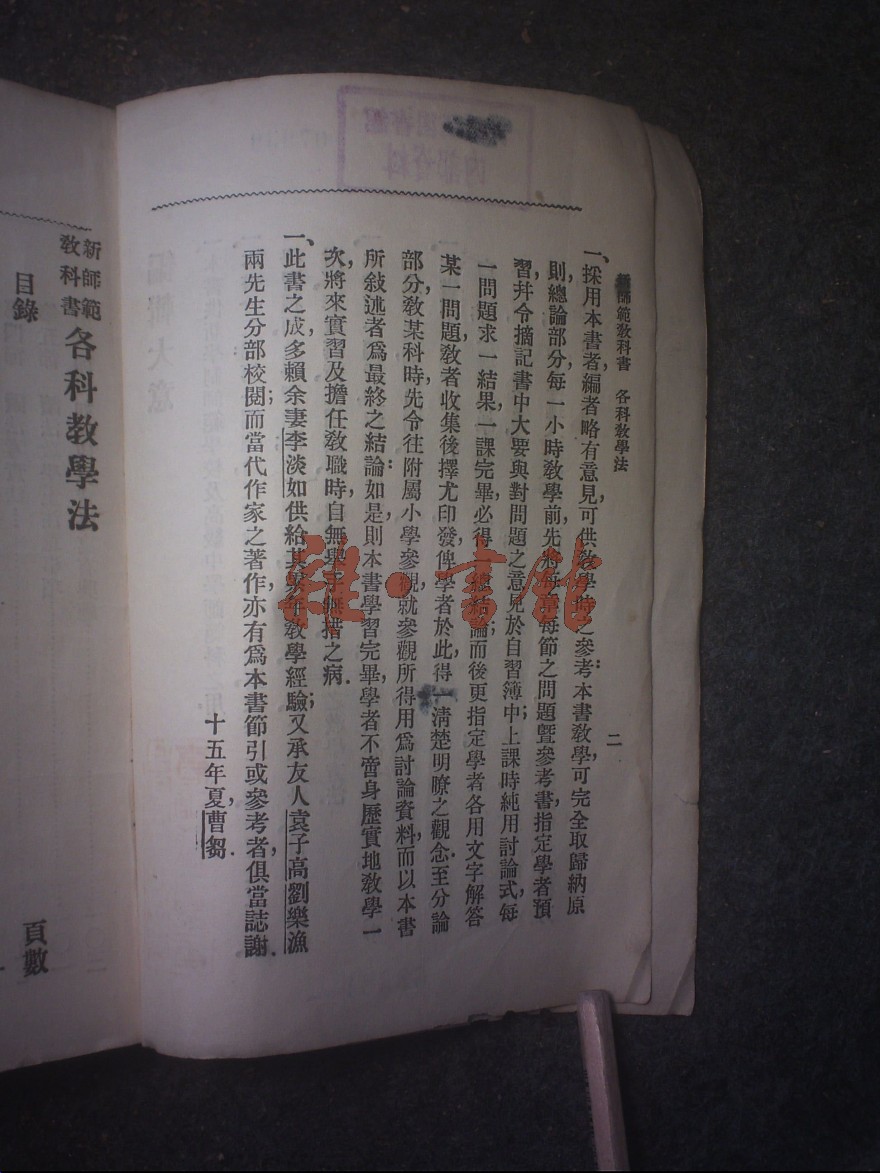 師範敎科書 各科敎學法
二
一、採用本書者編者略有意見,可供敎學時之參考:本書敎學,可完全取歸納原
則,總論部分,每一小時敎學前,先將每章每節之問題曁參考書,指定學者預
習,幷令摘記書中大要與對問題之意見於自習簿中;上課時純用討論式,每
一問題求一結果,一課完畢,必得一總結論;而後更指定學者各用文字解答
某一問題,敎者收集後,擇尤印發,俾學者於此,得一淸楚明瞭之觀念.至分論
部分,敎某科時,先令往附屬小學參觀,就參觀所得,用爲討論資料,而以本書
所敍述者爲最終之結論:如是,則本書學習完畢,學者不啻身歷實地敎學一
次,將來實習及擔任敎職時,自無舉手無措之病.
一、此書之成,多賴余妻李淡如供給其累年敎學經驗;又承友人袁子高劉樂漁
兩先生分部校閱;而當代作家之著作,亦有爲本書節引或參考者,俱當誌謝.
十五年夏,曹芻.
新師範
敎科書
各科敎學法
目錄
頁數
雜·書館
內部資料